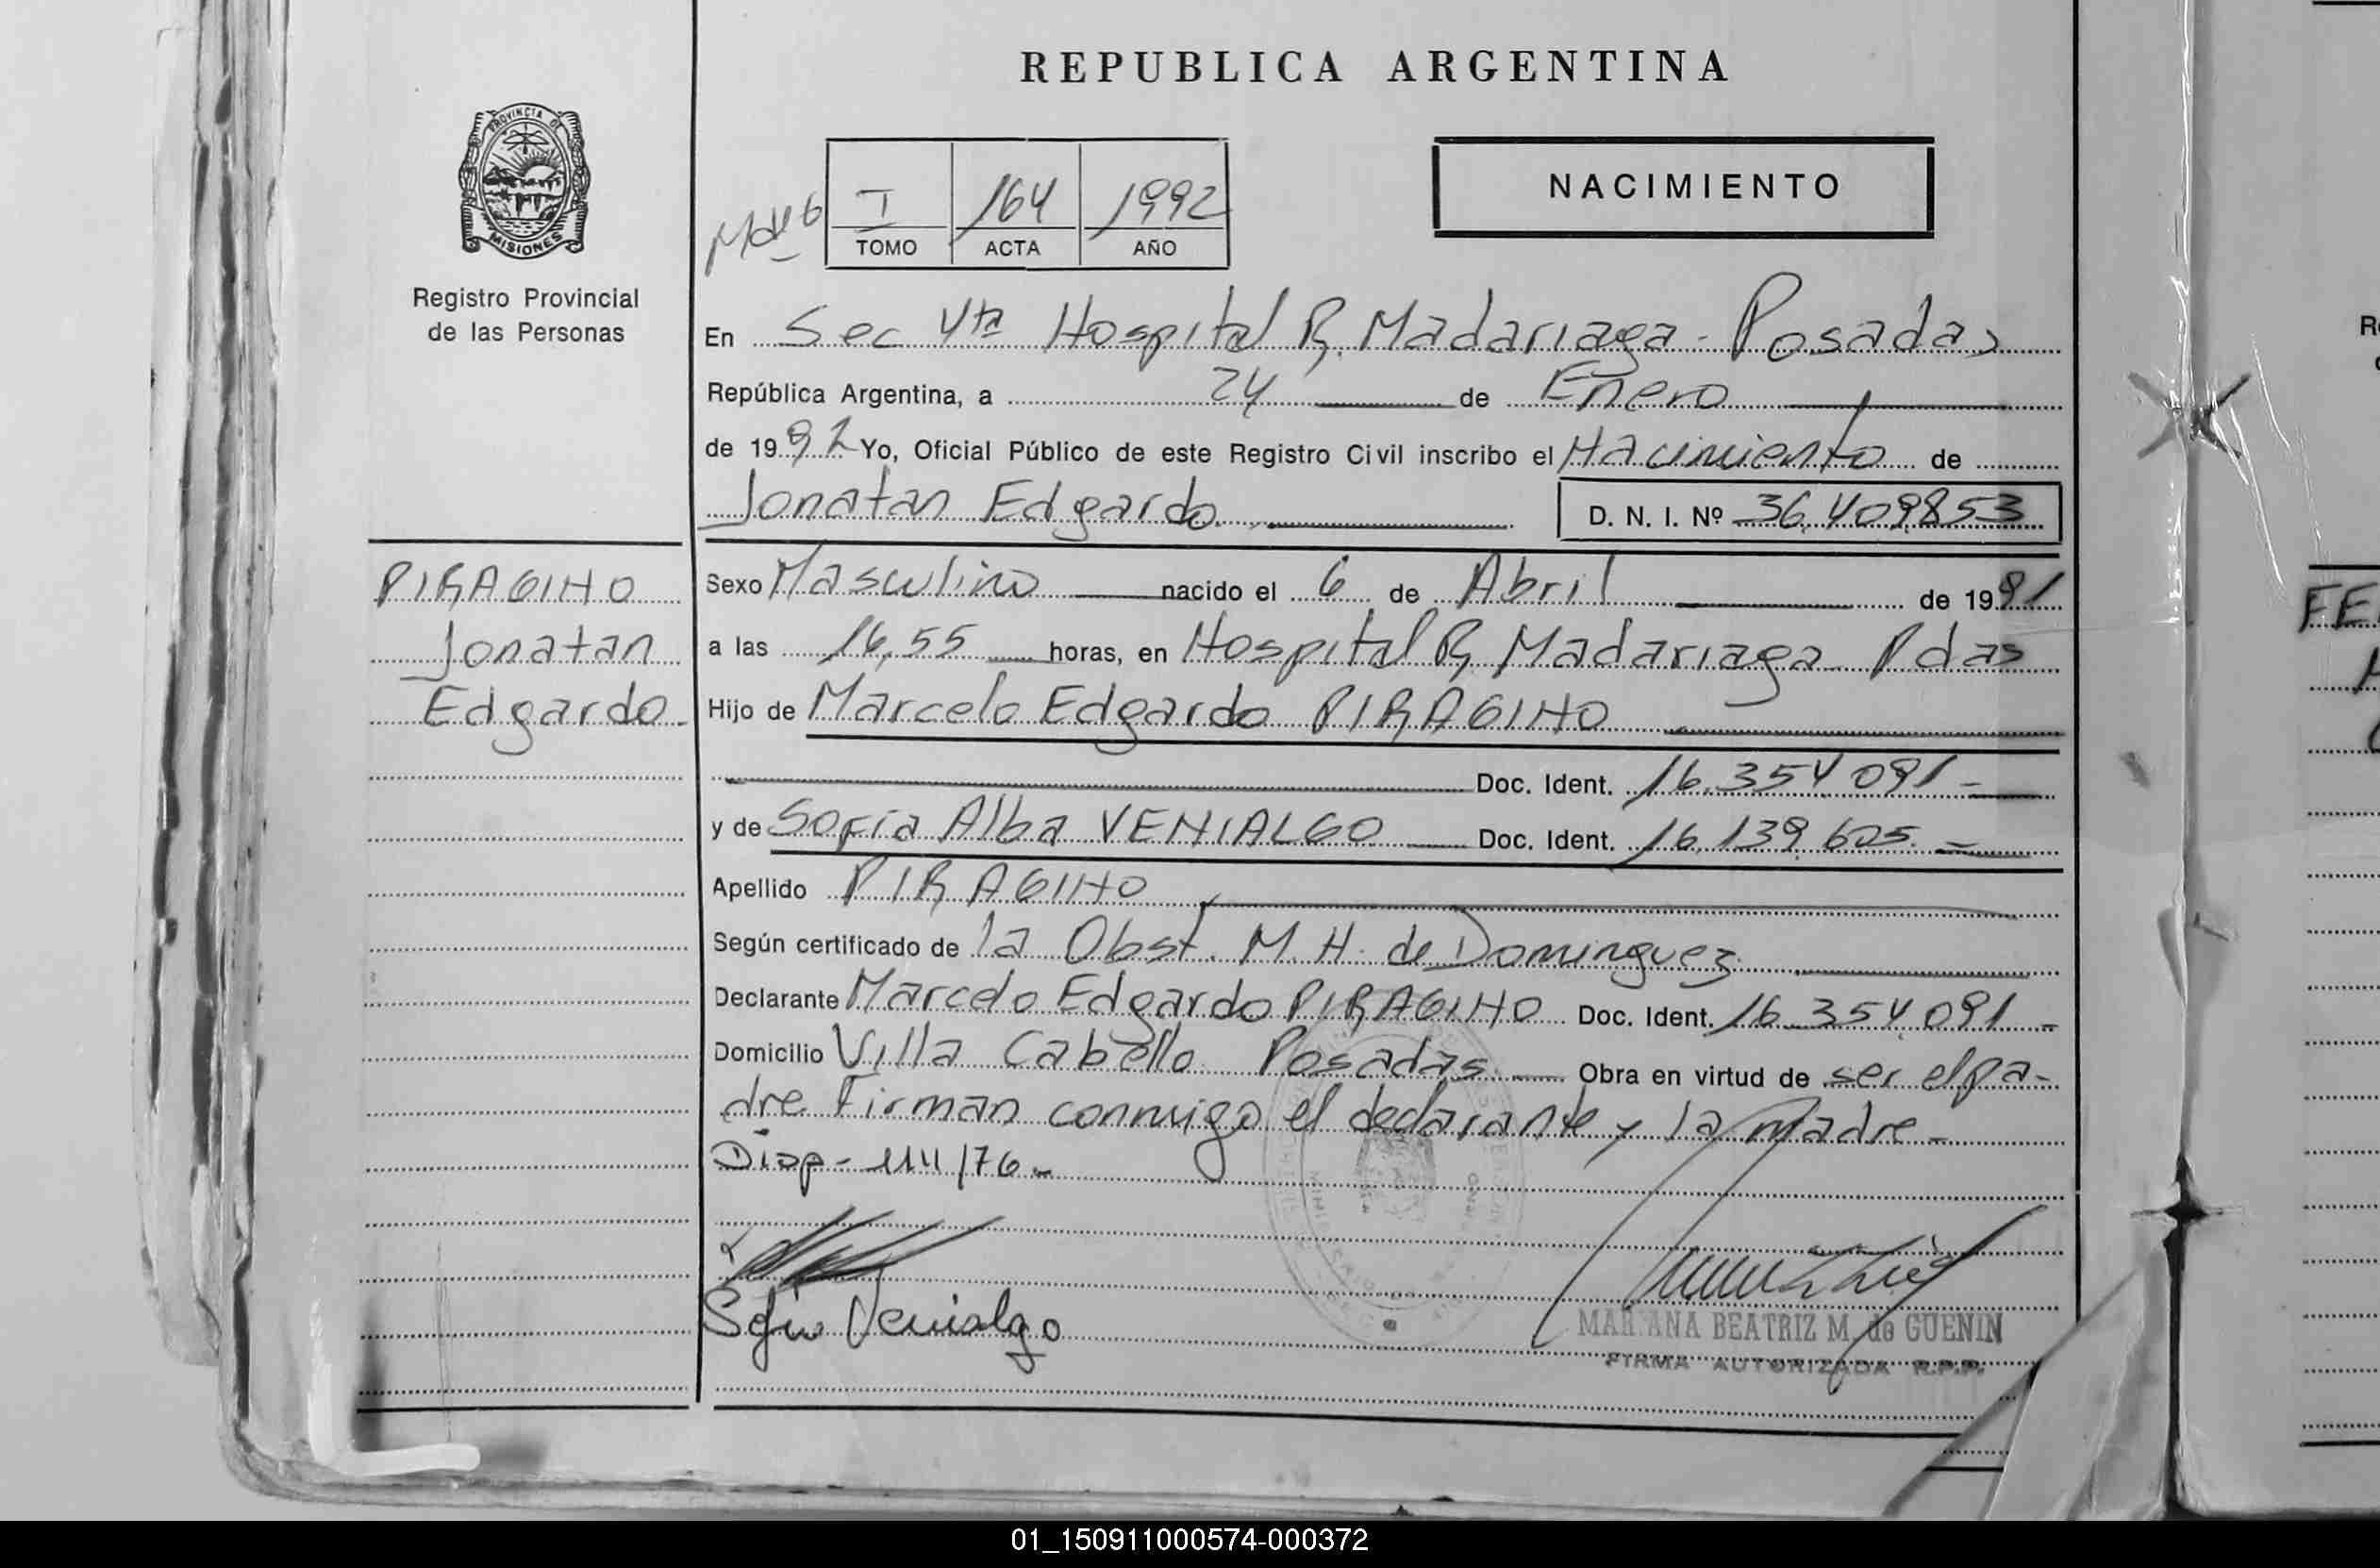 REPUBLICA ARGENTINA
PROVINCIA DE
MISIONES
Registro Provincial
de las Personas
I 164 1992
TOMO ACTA AÑO
NACIMIENTO
En Sec 4ta Hospital R. Madariaga - Posadas
República Argentina, a 24 de Enero
de 1992 Yo, Oficial Público de este Registro Civil inscribo el Nacimiento de
Jonatan Edgardo D. N. I. Nº 36.409853
PIRAGINO
Jonatan
Edgardo
Sexo Masculino nacido el 6 de Abril de 1991
a las 16,55 horas, en Hospital R. Madariaga Pdas
Hijo de Marcelo Edgardo PIRAGINO
Doc. Ident. 16.354.091-
y de Sofía Alba VENIALGO Doc. Ident. 16.139.605.
Apellido PIRAGINO
Según certificado de la Obst. M. H. de Dominguez
Declarante Marcelo Edgardo PIRAGINO Doc. Ident. 16.354.091-
Domicilio Villa Cabello Posadas. Obra en virtud de ser el pa-
dre Firman conmigo el declarante y la madre-
Disp-
Sofia Venialgo
MARIANA BEATRIZ M. de GUENIN
FIRMA AUTORIZADA R.P.P.
FE
01_150911000574-000372